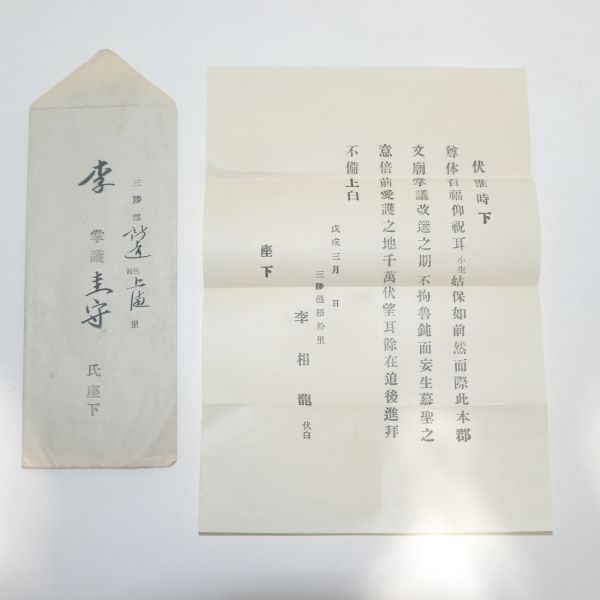 三陟郡 近邑面 上孟 里
李 掌議 圭守 氏座下
伏惟時下
尊体百福仰祝耳小生姑保如前然而際此本郡
文廟掌議改選之期不拘魯鈍而妄生慕聖之
意倍前愛護之地千萬伏望耳餘在追後進拜
不備上白
戊戌三月 日
三陟邑梧粉里
李相龍 伏白
座下